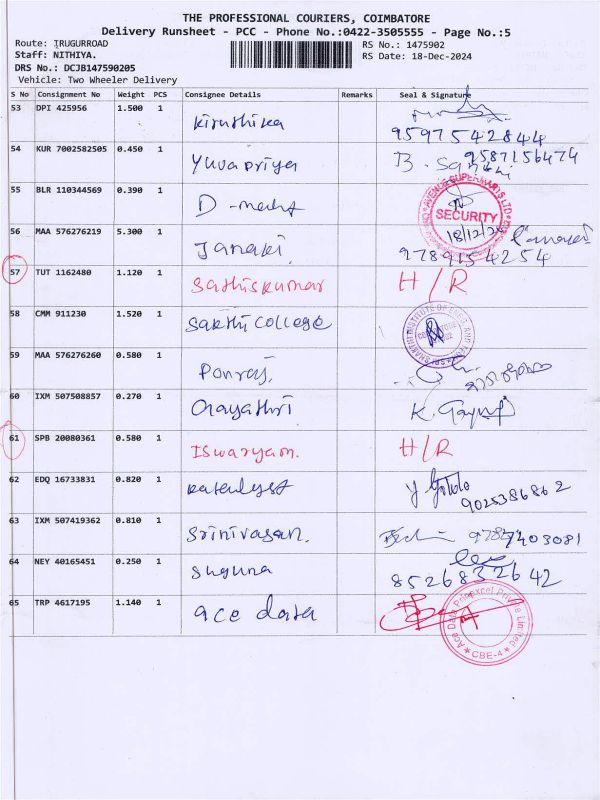 THE PROFESSIONAL COURIERS, COIMBATORE
Delivery Runsheet - PCC - Phone No.:0422-3505555 - Page No.:5
Route: IRUGURROAD
RS No.: 1475902
Staff: NITHIYA.
RS Date: 18-Dec-2024
DRS No.: DCJB147590205
Vehicle: Two Wheeler Delivery
S No Consignment No Weight PCS Consignee Details Remarks Seal & Signature
53 DPI 425956 1.500 1 Kiruthika 9597542844
54 KUR 7002582505 0.450 1 Yuvapriya B. 9587156474
55 BLR 110344569 0.390 1 D-mart AVENUE SUPERMARTS LTD SECURITY 18/12/24
56 MAA 576276219 5.300 1 Janaki 9789154254
57 TUT 1162480 1.120 1 Sathiskumar H/R
58 CMM 911230 1.520 1 Sakthi College
59 MAA 576276260 0.580 1 Ponraj.
60 IXM 507508857 0.270 1 Gayathri K. Gayathri
61 SPB 20080361 0.580 1 ISwaryam. H/R
62 EDQ 16733831 0.820 1 9025386862
63 IXM 507419362 0.810 1 Srinivasan.
64 NEY 40165451 0.250 1 Suguna 8526832642
65 TRP 4617195 1.140 1 ace data Ace Data Prinexcel Private Limited CBE-4